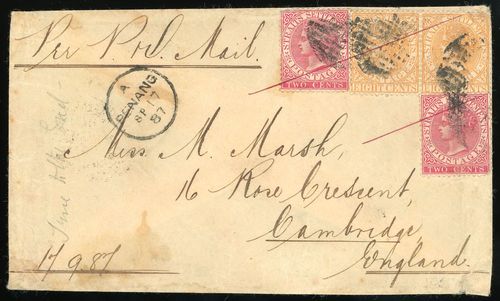 Per P.&O. Mail.
STRAITS SETTLEMENTS
POSTAGE
TWO CENTS
EIGHT CENTS
EIGHT CENTS
STRAITS SETTLEMENTS
POSTAGE
TWO CENTS
A
PENANG
SP 17
87
Miss M. Marsh,
16 Rose Crescent,
Cambridge
England.
17 9 87